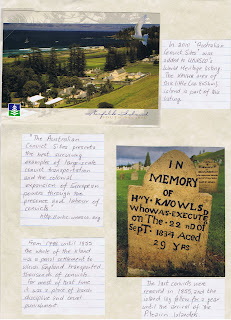 In 2010 "Australian
Convict Sites" was
added to UNESCO's
World Heritage listing.
The KAVHA area of
Norfolk Island
island is part of the
listing.
"The Australian
Convict Sites presents
the best surviving
examples of large-scale
convict transportation
and the colonial
expansion of European
powers through the
presence and labour of
convicts."
From 1788 until 1855
the whole of the island
was a penal settlement to
whom England transported
thousands of convicts.
For most of that time
it was a place of harsh
discipline and cruel
punishment.
IN
MEMORY
OF
HY. KNOWLS
WHO WAS EXECUTED
ON THE 22 ND OF
SEPT. 1834 Aced
29 YRS
The last convicts were
removed in 1855, and the
island lay fallow for a year
until the arrival of the
Pitcairn Islanders.